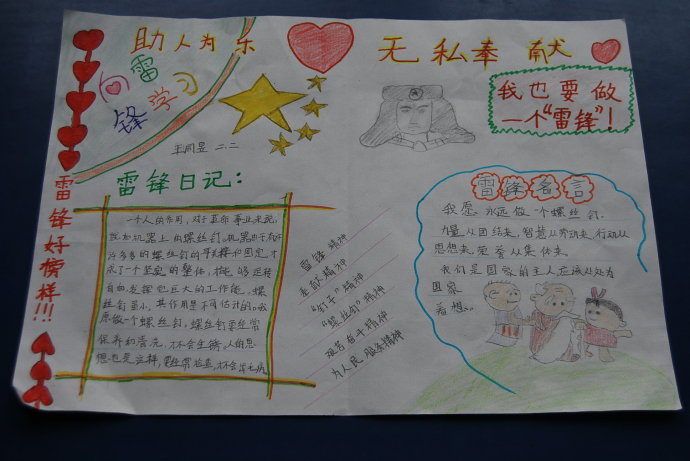 助人为乐
无私奉献
向雷
锋学习
我也要做
一个“雷锋”!
二.二
雷锋好榜样!!!
雷锋日记:
一个人的作用,对于革命事业来说,
就如机器上的螺丝钉。机器由于有
许多多的螺丝钉的联接和固定,才
成了一个坚实的整体,才能够运转
自由,发挥它巨大的工作能,螺
丝钉虽小,其作用是不可估计的。我
愿做一个螺丝钉,螺丝钉要经常
保养和清洗,才不会生锈。人的思
想也是这样,要经常检查,才不会出毛病
雷锋精神
奉献精神
“钉子”精神
“螺丝钉”精神
艰苦奋斗精神
为人民服务精神
雷锋名言
我愿永远做一个螺丝钉.
力量从团结来,智慧从劳动来,行动从
思想来,荣誉从集体来.
我们是国家的主人应该处处为
国家
着想。